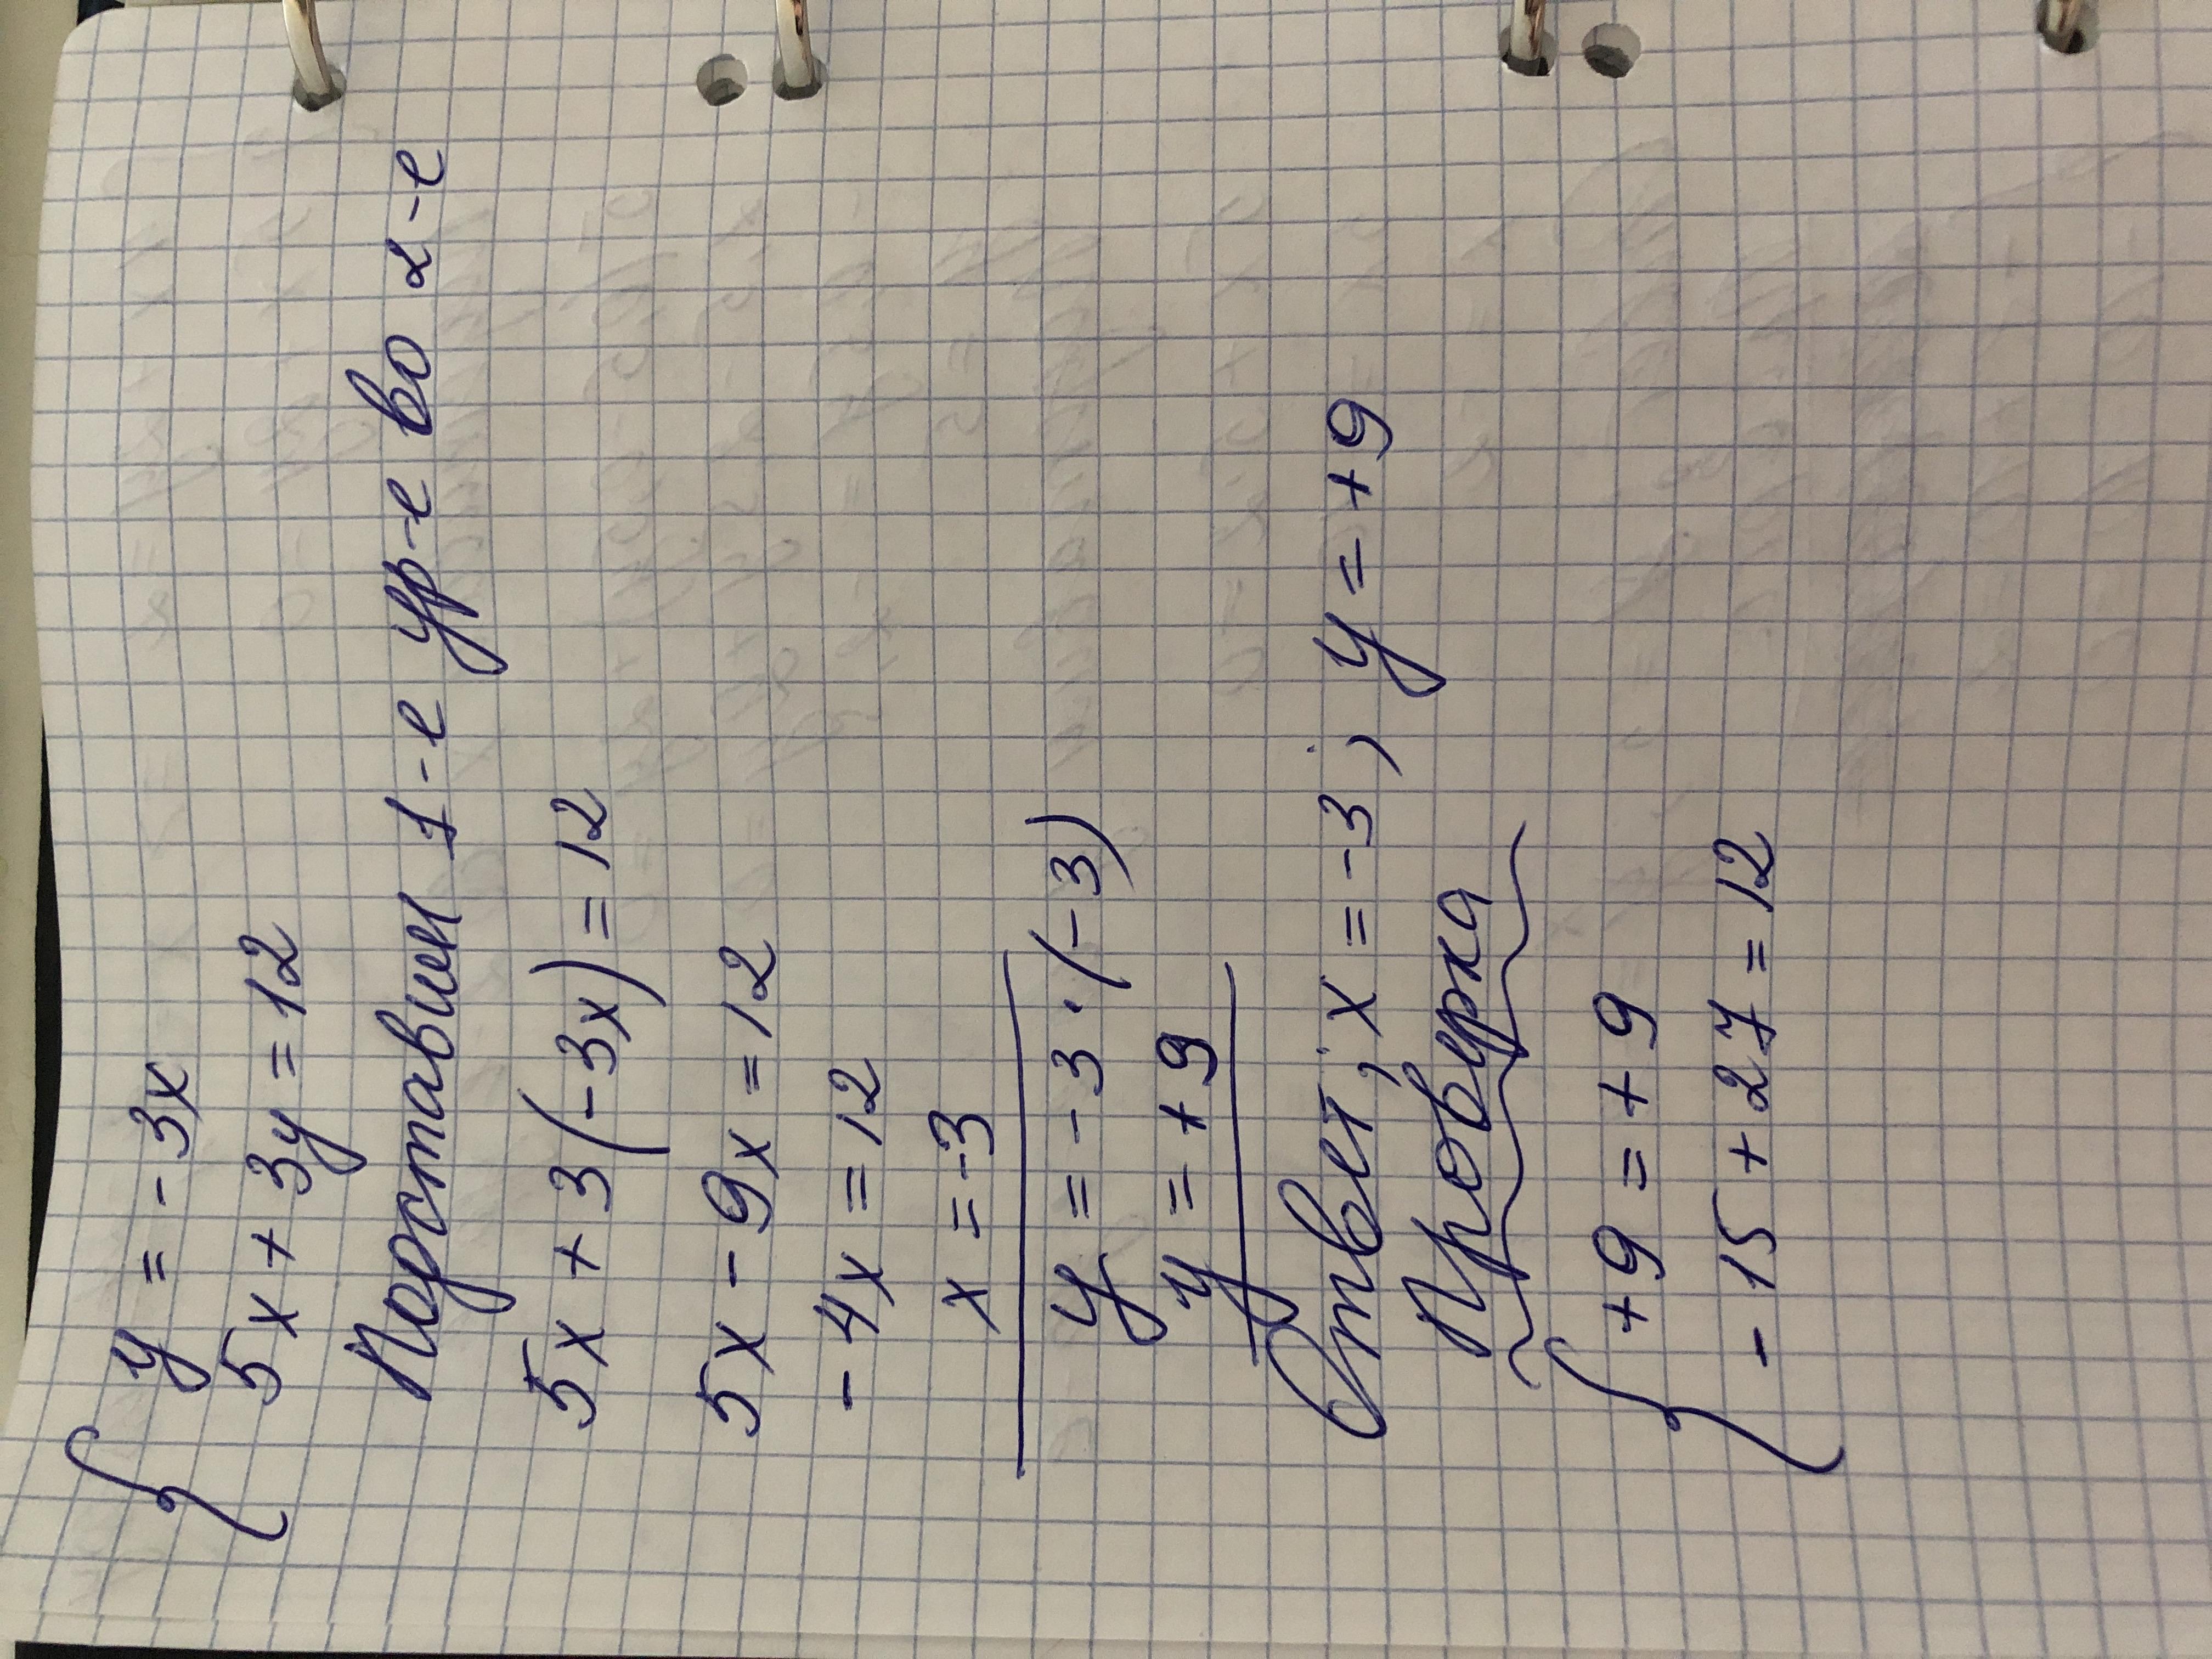 { y = - 3x
5x + 3y = 12
Подставим 1-е ур-е во 2-е
5x + 3(-3x) = 12
5x - 9x = 12
- 4x = 12
x = -3
y = -3 · (-3)
y = + 9
Ответ; x = -3; y = +9
Проверка
{ +9 = +9
- 15 + 27 = 12